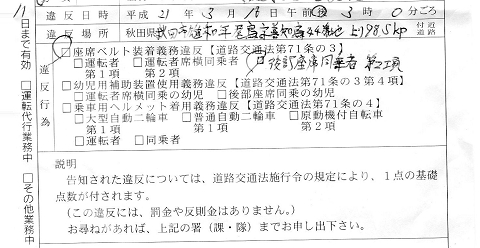 違反日時 平成21年3月18日午前後3時0分ごろ
違反場所 秋田県 上り98.5kp 付近道路
違反行為
□座席ベルト装着義務違反【道路交通法第71条の3】
□運転者 □運転者席横同乗者 後部座席同乗者 第2項
第1項 第2項
□幼児用補助装置使用義務違反【道路交通法第71条の3第4項】
□運転者席横同乗の幼児 □後部座席同乗の幼児
□乗車用ヘルメット着用義務違反【道路交通法第71条の4】
□大型自動二輪車 □普通自動二輪車 □原動機付自転車
第1項 第1項 第2項
□運転者 □同乗者
説明
告知された違反については、道路交通法施行令の規定により、1点の基礎
点数が付されます。
(この違反には、罰金や反則金はありません。)
お尋ねがあれば、上記の署(課・隊)までお申し出下さい。
日まで有効 □運転代行業務中 □その他業務中